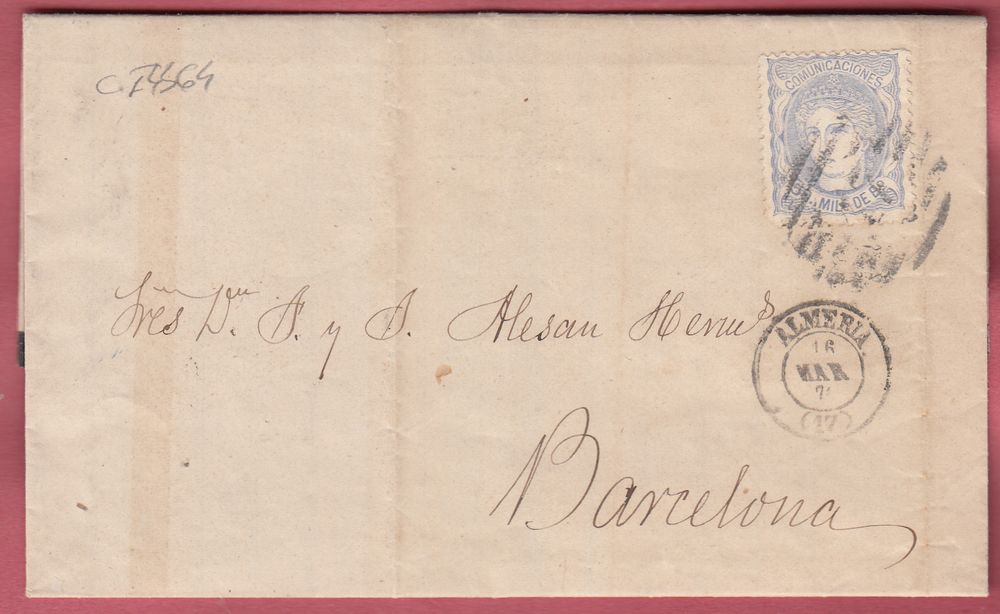 COMUNICACIONES
MILS DE
Sres Dn. A. y J. Alesan Hermos
ALMERIA
16
MAR
71
(17)
Barcelona